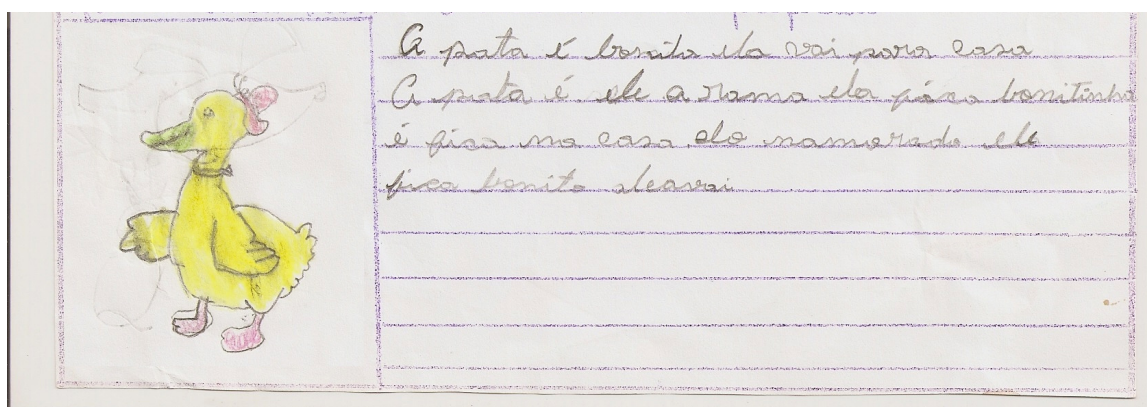 A pata é bonita ela vai para casa
A pata é ele a rama ela fica bonitinha
é fica na casa do namorado ele
fica bonito